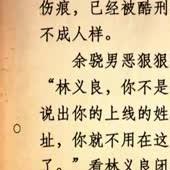 伤痕，已经被酷刑
不成人样。
余骁男恶狠狠
“林义良，你不是
说出你的上线的姓
址，你就不用在这
了。”看林义良闭